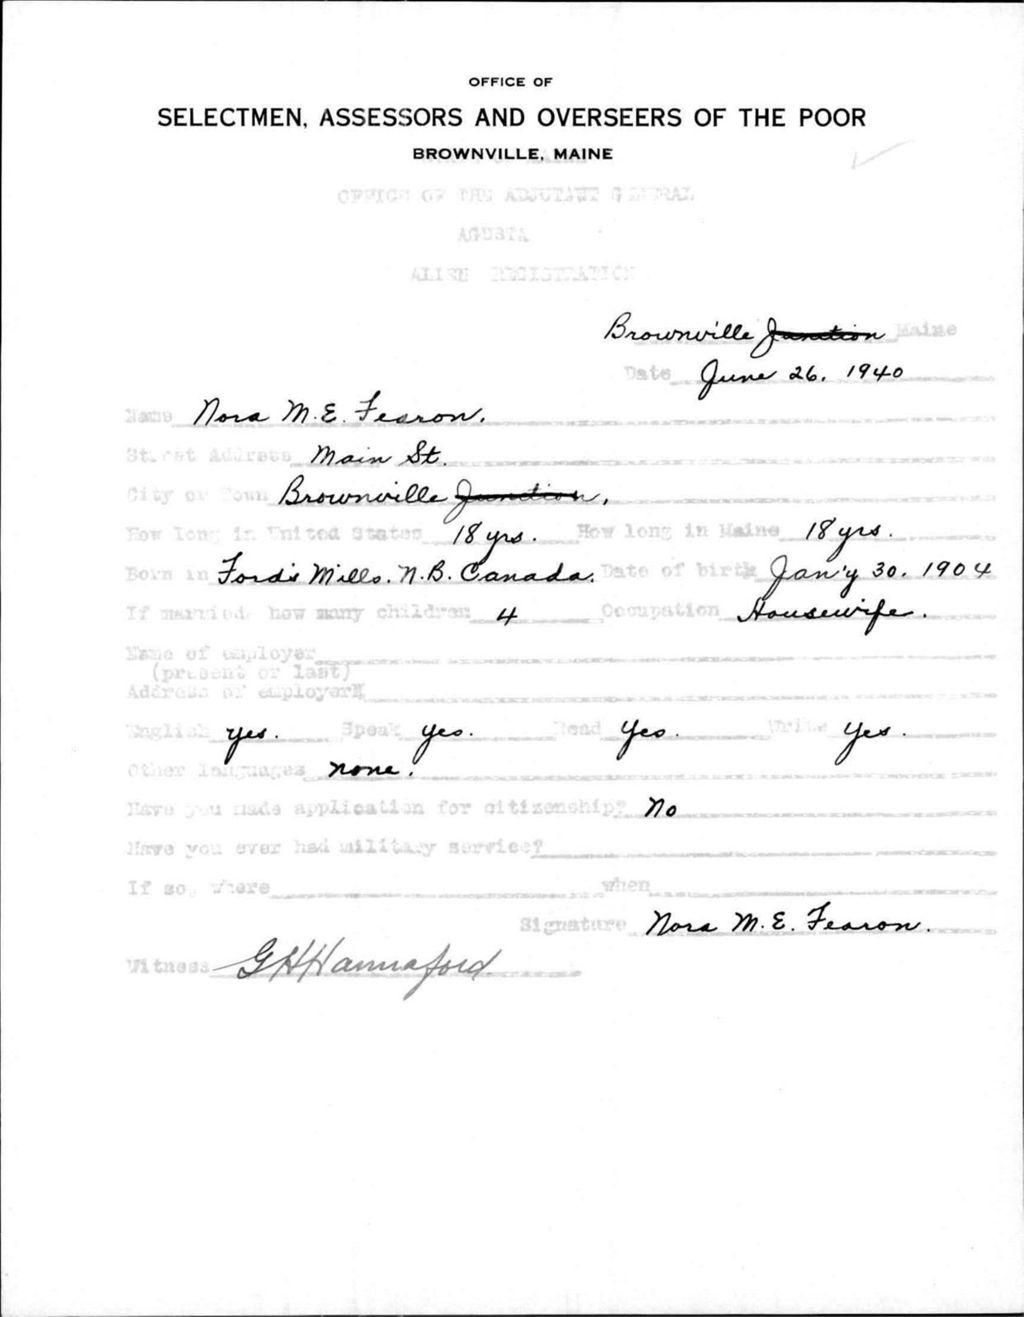 OFFICE OF
SELECTMEN, ASSESSORS AND OVERSEERS OF THE POOR
BROWNVILLE, MAINE
OFFICE OF THE ADJUTANT GENERAL
AGUSTA
ALIEN REGISTRATION
Brownville Junction Maine
Date June 26, 1940
Name Nora M. E. Fearon.
Street Address Main St.
City or Town Brownville Junction,
How long in United States 18 yrs. How long in Maine 18 yrs.
Born in Ford's Mills. N.B. Canada. Date of birth Jan'y 30, 1904
If married how many children 4 Occupation Housewife.
Name of employer
(present or last)
Address of employer
English yes. Speak yes. Read Yes. Write Yes.
Other languages none.
Have you made application for citizenship? No
Have you ever had military service?
If so, where when
Signature Nora M. E. Fearon.
Witness G H Hannaford